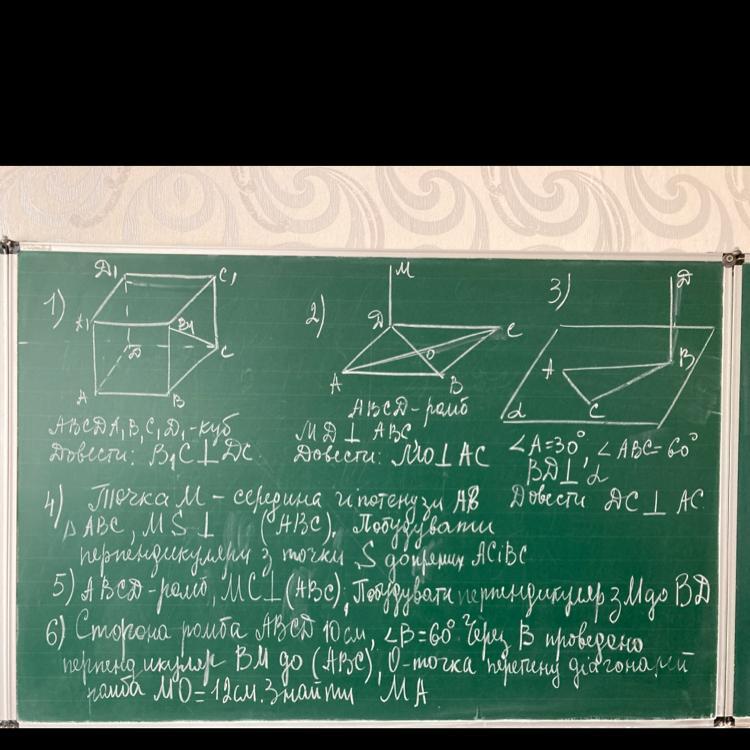 1) D₁ C₁ A₁ B₁ D C A B
ABCDA₁B₁C₁D₁-куб
Довести: B₁C⊥DC
2) M D C O A B
ABCD-ромб
MD⊥ABC,
Довести: MO⊥AC
3) D A B C α
∠A=30°, ∠ABC=60°
BD⊥α
Довести DC⊥AC
4) Точка M - середина гіпотенузи AB
△ABC, MS⊥ (ABC). Побудувати
перпендикуляри з точки S до прямих AC і BC
5) ABCD-ромб, MC⊥(ABC), Побудувати перпендикуляр з M до BD
6) Сторона ромба ABCD 10см, ∠B=60° Через B проведено
перпендикуляр BM до (ABC), O-точка перетину діагоналей
ромба MO=12см. Знайти MA